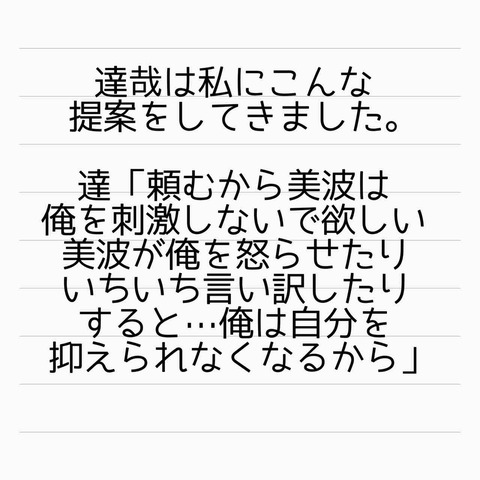 達哉は私にこんな
提案をしてきました。
達「頼むから美波は
俺を刺激しないで欲しい
美波が俺を怒らせたり
いちいち言い訳したり
すると…俺は自分を
抑えられなくなるから」